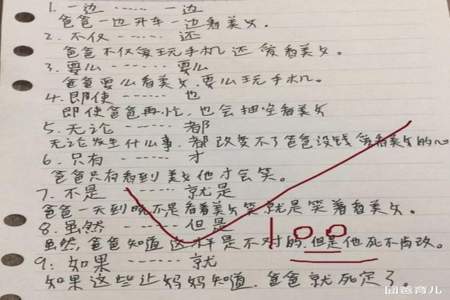 1. 一边 …… 一边
爸爸一边开车一边看美女。
2. 不仅 …… 还
爸爸不仅爱玩手机还爱看美女。
3. 要么 …… 要么
爸爸要么看美女，要么玩手机。
4. 即使 …… 也
即使爸爸再忙，也会抽空看美女
5. 无论 …… 都
无论发生什么事，都改变不了爸爸没钱爱看美女的心
6. 只有 …… 才
爸爸只有看到美女他才会笑。
7. 不是 …… 就是
爸爸一天到晚不是看着美女笑就是笑着看美女。
8. 虽然 …… 但是
虽然，爸爸知道这样是不对的，但是他死不肯改。
9: 如果 …… 就
如果这些让妈妈知道，爸爸就死定了。
100
爸育儿